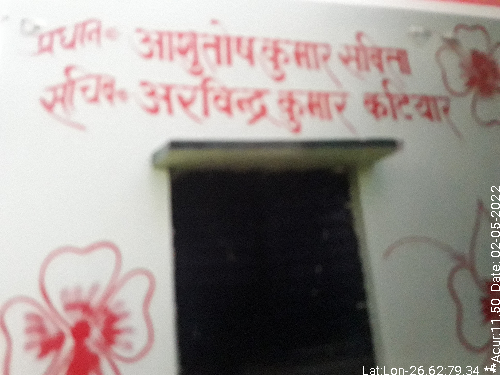 प्रधान॰ आशुतोष कुमार सविता
सचिव॰ अरविन्द्र कुमार कटियार
Lat:Lon-26.62:79.34 **Acur:11.50 Date: 02-05-2022